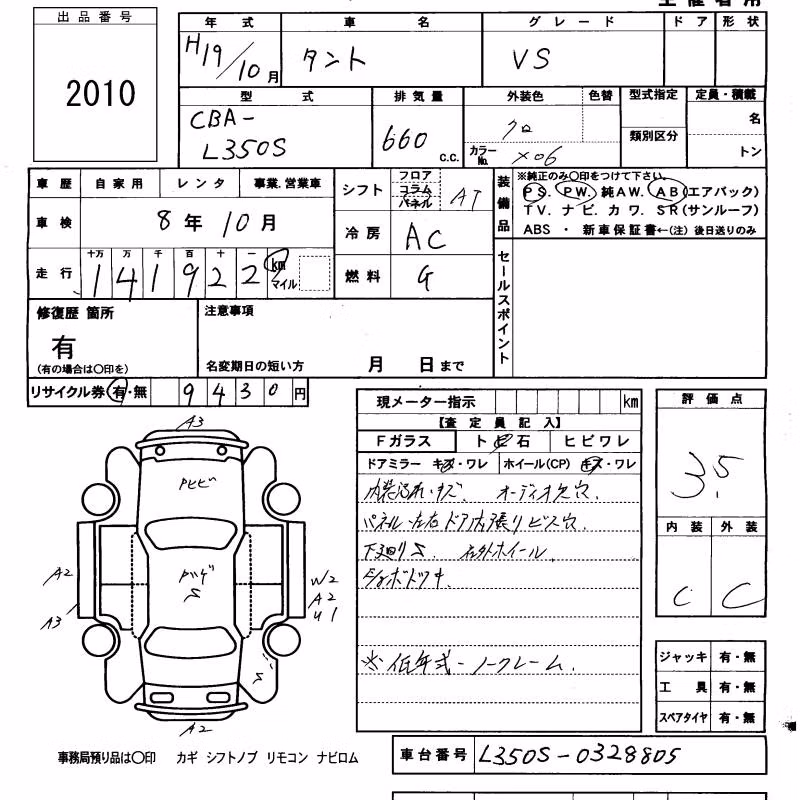 出品番号
2010
年式 車名 グレード ドア 形状
H19/10月 タント VS
型式 排気量 外装色 色替 型式指定 定員・積載
CBA-
L350S
660 C.C.
クロ
カラーNo. X06
類別区分
名
トン
車歴 自家用 レンタ 事業.営業車
車検 8年10月
走行 十万 万 千 百 十 一
141922 km
マイル
シフト フロア コラム パネル AT
冷房 AC
燃料 G
装備品
※純正のみ〇印をつけて下さい。
PS. PW. 純AW. AB(エアバック)
TV. ナビ. カワ. SR(サンルーフ)
ABS ・ 新車保証書←(注) 後日送りのみ
セールスポイント
修復歴 箇所
有
(有の場合は〇印を)
注意事項
名変期日の短い方 月 日まで
リサイクル券 有・無 9430円
現メーター指示 km
【査定員記入】
Fガラス トビ石 ヒビワレ
ドアミラー キズ・ワレ ホイール(CP) キズ・ワレ
内装汚れ・キズ. オーディオ欠穴.
パネル左右ドア内張りビス穴.
下廻りS. 社外ホイール.
ショボドツキ.
※低年式-ノークレーム.
評価点
3.5
内装 外装
C C
ジャッキ 有・無
工具 有・無
スペアタイヤ 有・無
A3
Pヒビ
A2
A3
S
W2
A2
U1
S
A2
事務局預り品は〇印 カギ シフトノブ リモコン ナビロム
車台番号 L350S-0328805